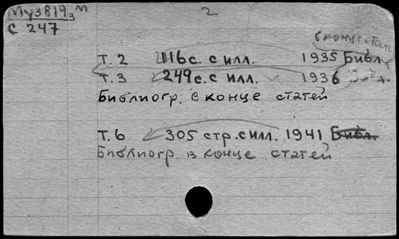 Муз819₃ м
С 247
2
в конце статей
т. 2 116с. с илл. 1935 Библ.
т. 3 249с. с илл. 1936 Библ.
Библиогр. в конце статей
т. 6 305 стр. с илл. 1941 Библ.
Библиогр. в конце статей